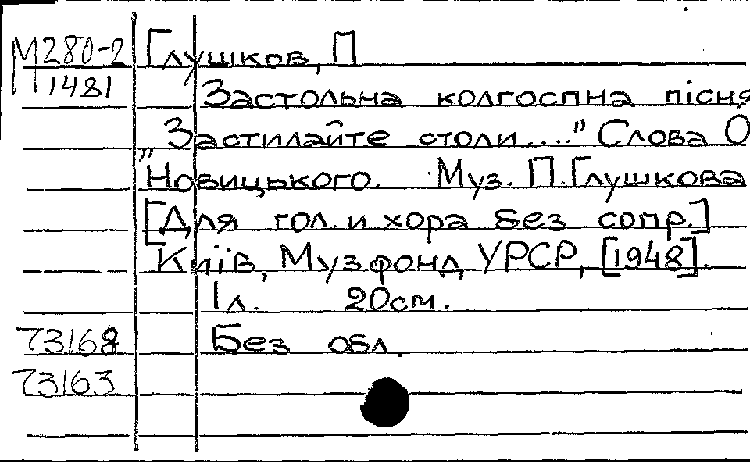 М280-2 Глушков, П
1481 Застольна колгоспна пісня
„Застилайте столи...." Слова О
Новицького. Муз. П. Глушкова
[Для гол. и хора без сопр.]
Київ, Музфонд УРСР, [1948].
1 л. 20 см.
73168 Без обл.
73163